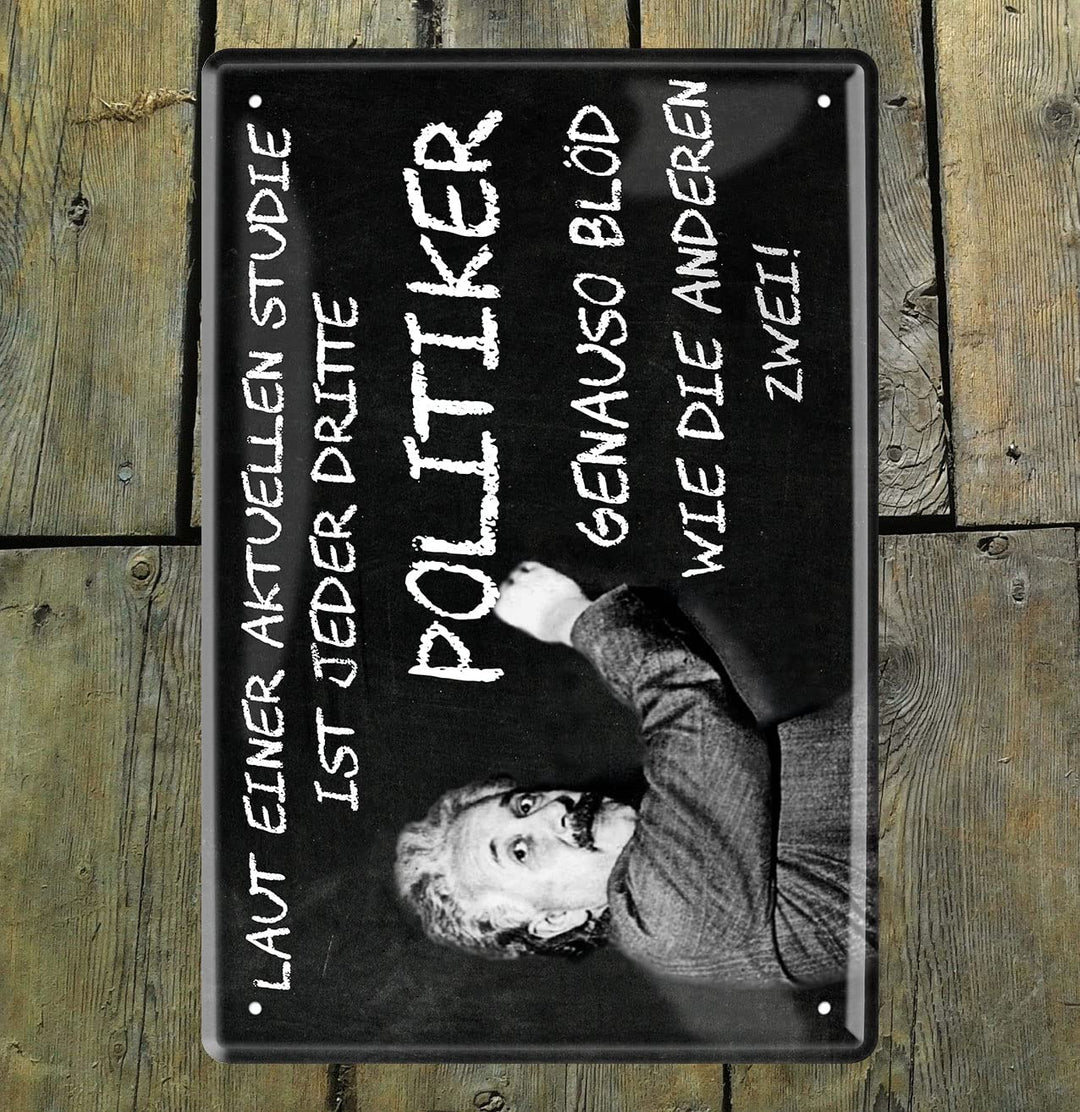 LAUT EINER AKTUELLEN STUDIE
IST JEDER DRITTE
POLITIKER
GENAUSO BLÖD
WIE DIE ANDEREN
ZWEI!